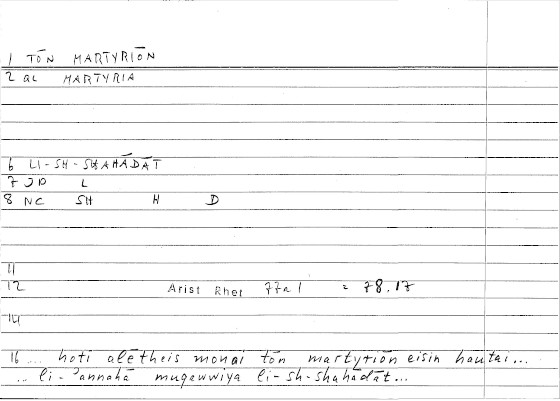 1 TŌN MARTYRIŌN
2 al MARTYRIA
6 LI-SH-SHAHĀDĀT
7 JP L
8 NC SH H D
11
12 Arist Rhet 77a1 = 78.17
14
16 ... hoti alētheis monai tōn martyriōn eisin hautai...
... li-'annahā muqawwiya li-sh-shahādāt...